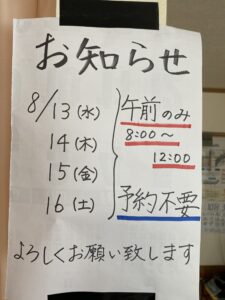 お知らせ
8/13(水)
14(木)
15(金)
16(土)
午前のみ
8:00～
12:00
予約不要
よろしくお願い致します